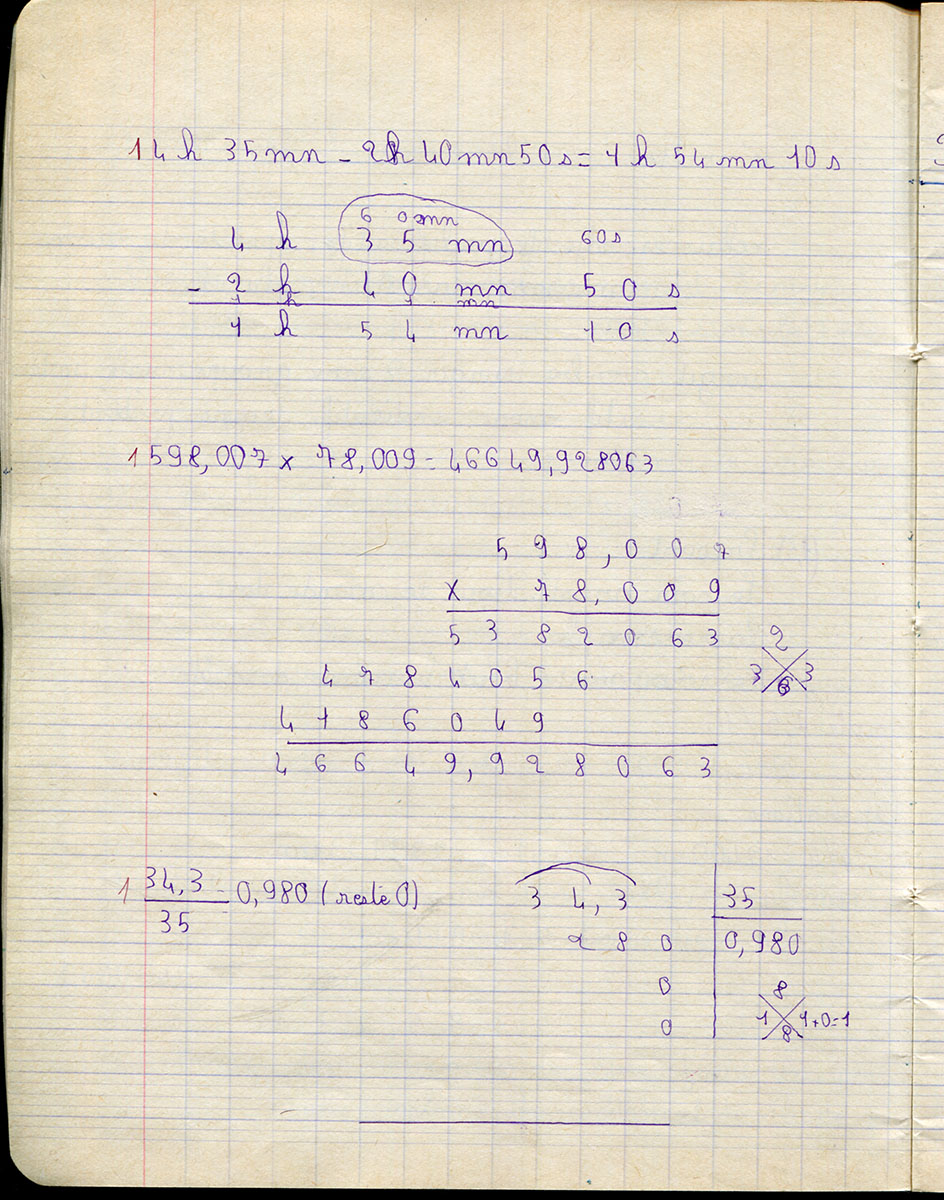 1 4 h 35 mn - 2h 40 mn 50 s = 1 h 54 mn 10 s
6 0 mn
4 h 3 5 mn 60 s
- 2 h 4 0 mn 5 0 s
1 h 1 mn
1 h 5 4 mn 1 0 s
1 598,007 x 78,009 = 46649,928063
5 9 8 , 0 0 7
x 7 8 , 0 0 9
5 3 8 2 0 6 3
4 7 8 4 0 5 6
4 1 8 6 0 4 9
4 6 6 4 9 , 9 2 8 0 6 3
2
3 3
6
1 34,3 = 0,980 (reste 0)
35
3 4 , 3 35
2 8 0 0,980
0
0
8
1 1+0=1
8